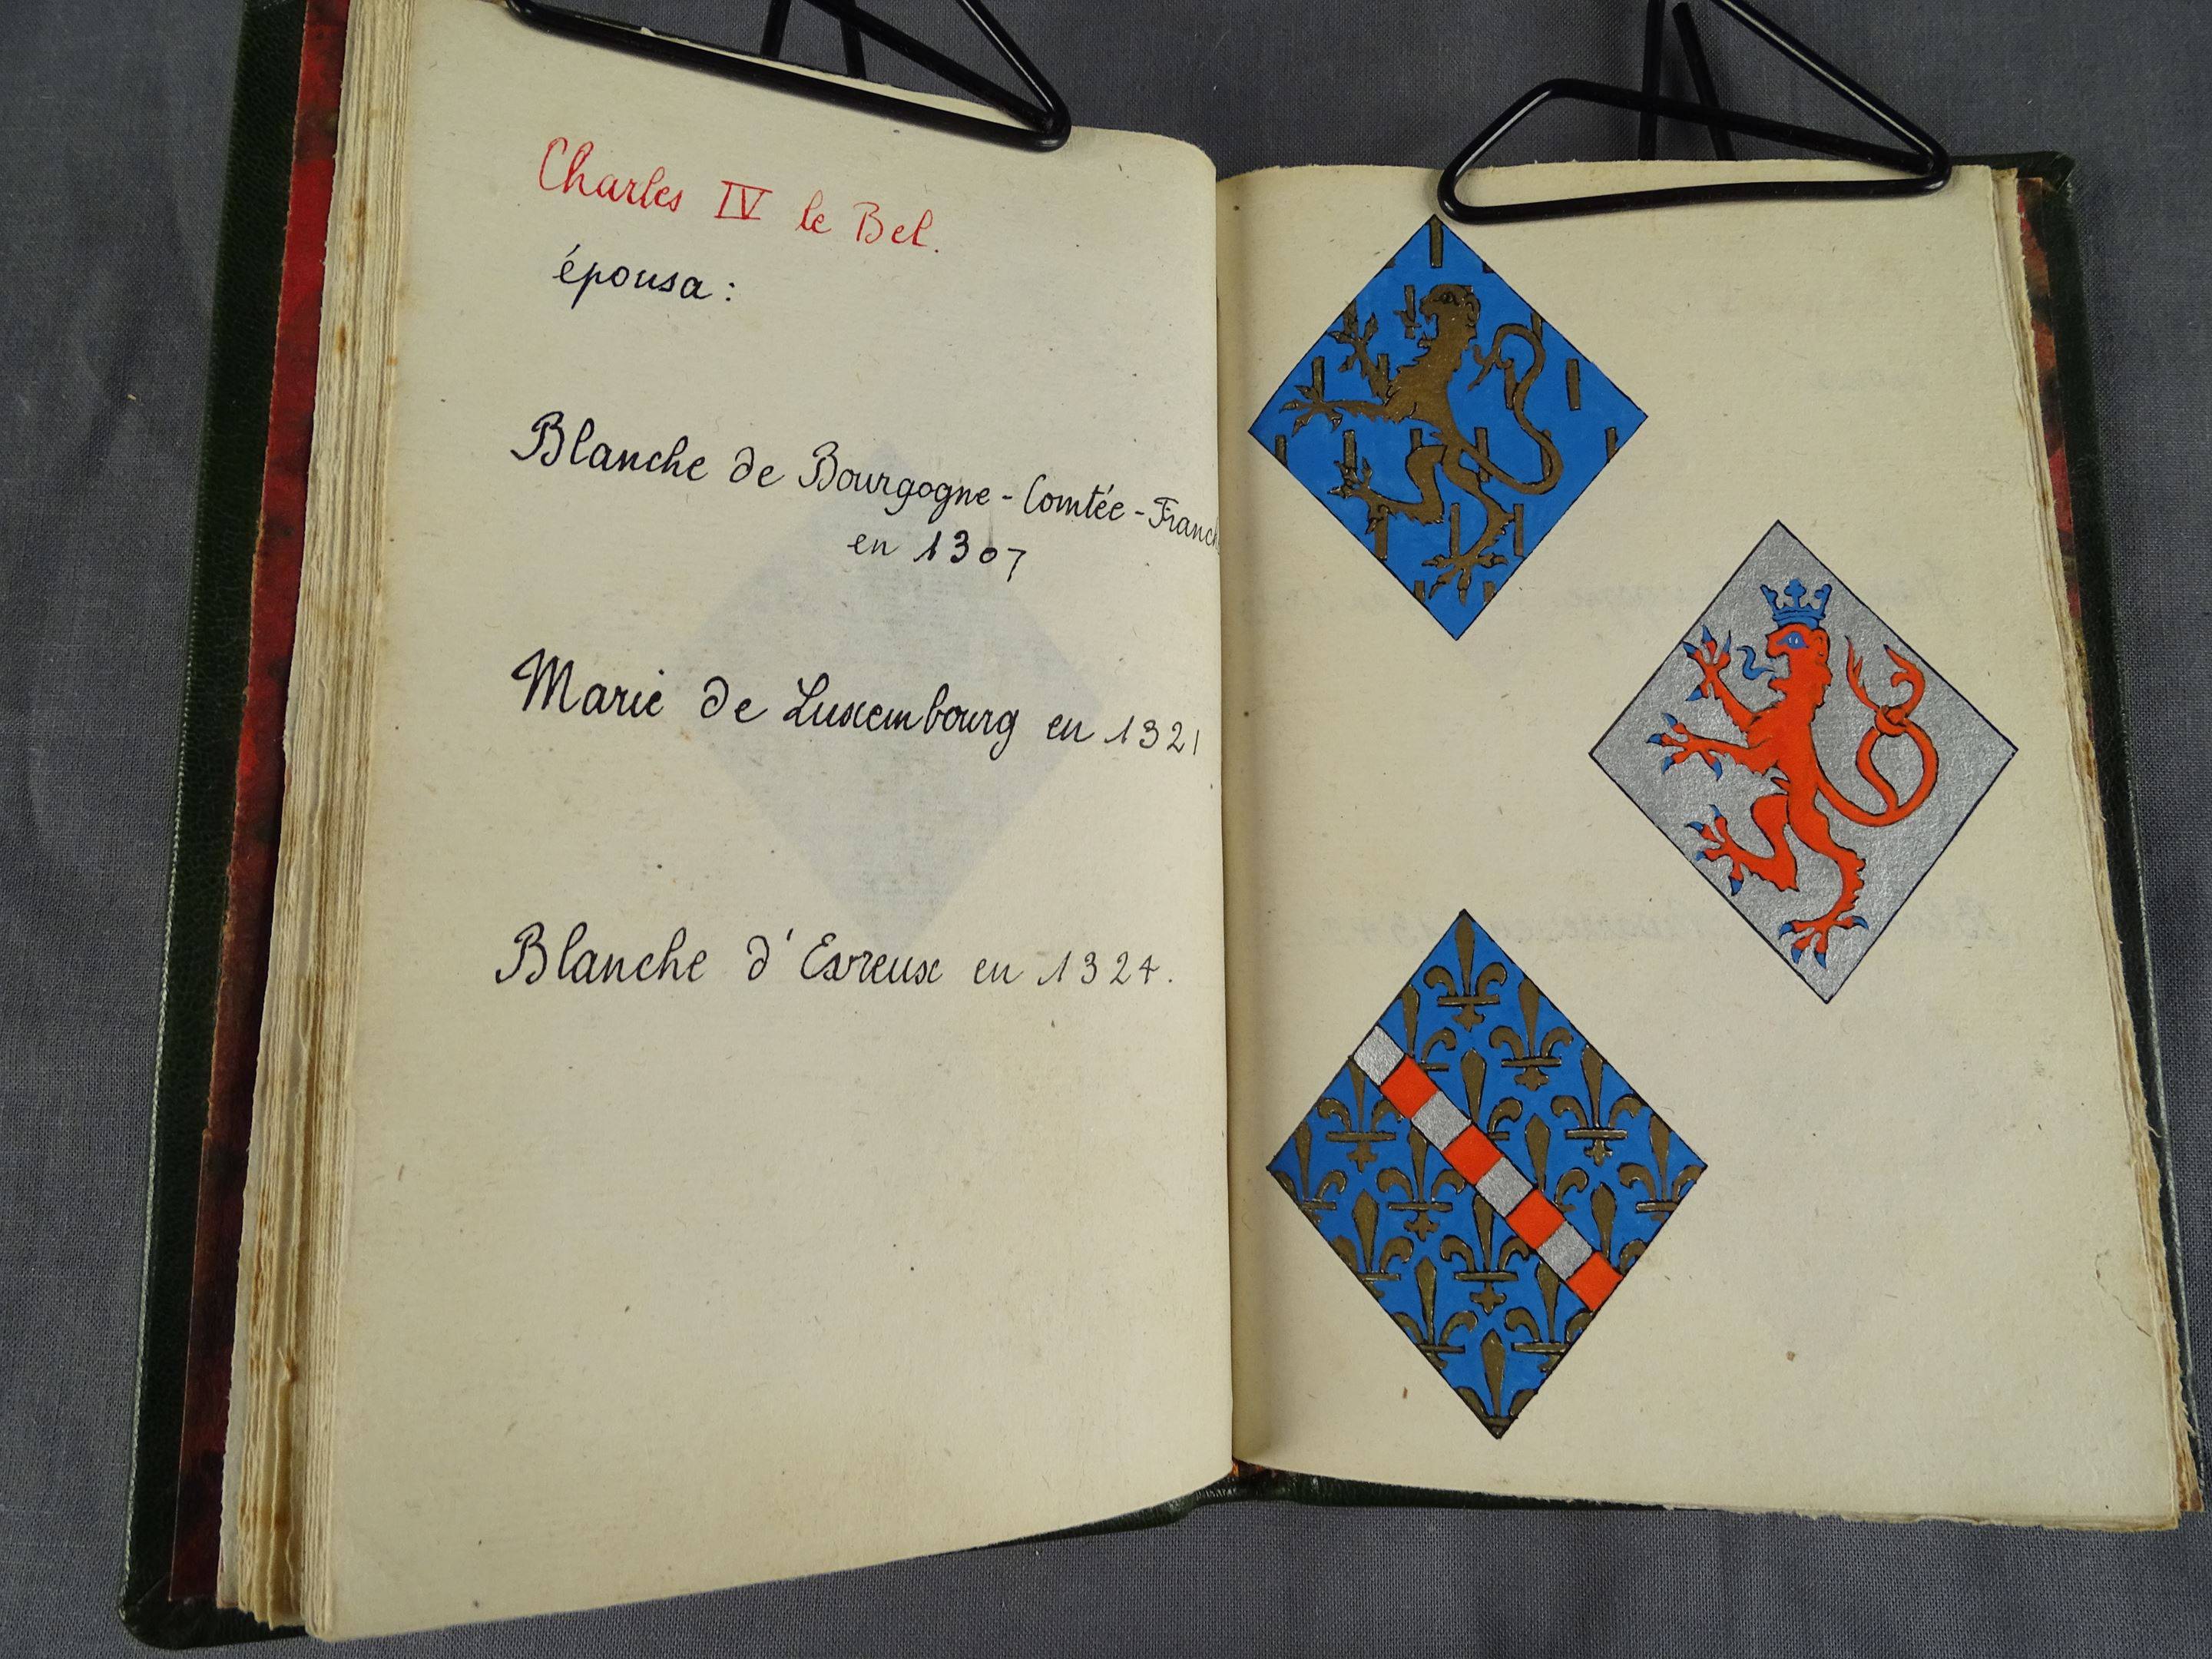 Charles IV le Bel.
épousa :
Blanche de Bourgogne - Comtée - Franch
en 1307
Marie de Luxembourg en 1321
Blanche d'Evreux en 1324.